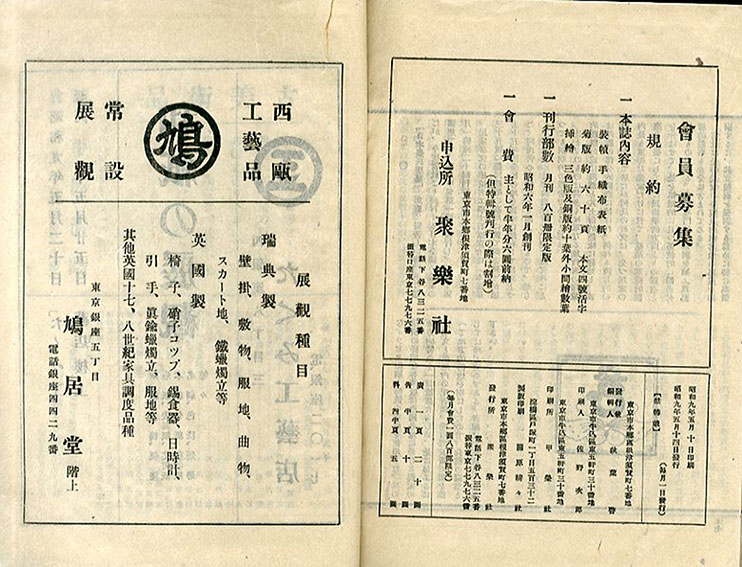 會員募集
規約
一 本誌内容
裝幀 手織布表紙
菊版 約六十頁 本文四號活字
挿繪 三色版及銅版約十葉外小間繪數葉
一 刊行部數 月刊 八百册限定版
昭和六年一月創刊
一 會費 主として半年分六圓前納
(但特輯號刊行の際は割增)
東京市本鄕區根津須賀町七番地
申込所 聚樂社
電話下谷八三二五番
振替口座東京七七九七六番
昭和九年五月十日印刷
昭和九年五月十四日發行
(每月一回發行)
東京市本鄕區根津須賀町七番地
編輯人
東京市牛込區東五軒町三十番地
印刷人 佐野
東京市牛込區東五軒町三十番地
印刷所
淀橋區戸塚町一丁目五百三十二
東京市本鄕區根津須賀町七番地
發行所 聚樂社
電話下谷八三二五番
振替東京七七九七六番
(每月會費一圓八百部限定)
廣 一頁 二十圓
告 半頁 十圓
料 四半頁 五圓
西歐
工藝品
鳩
常設
展觀
展觀種目
瑞典製
壁掛、敷物、服地、曲物、
スカート地、鐵蠟燭立等
英國製
椅子、硝子コップ、錫食器、日時計、
引手、眞鍮蠟燭立、服地等
其他英國十七、八世紀家具調度品種
東京銀座五丁目
鳩居堂 階上
電話銀座四四二九番